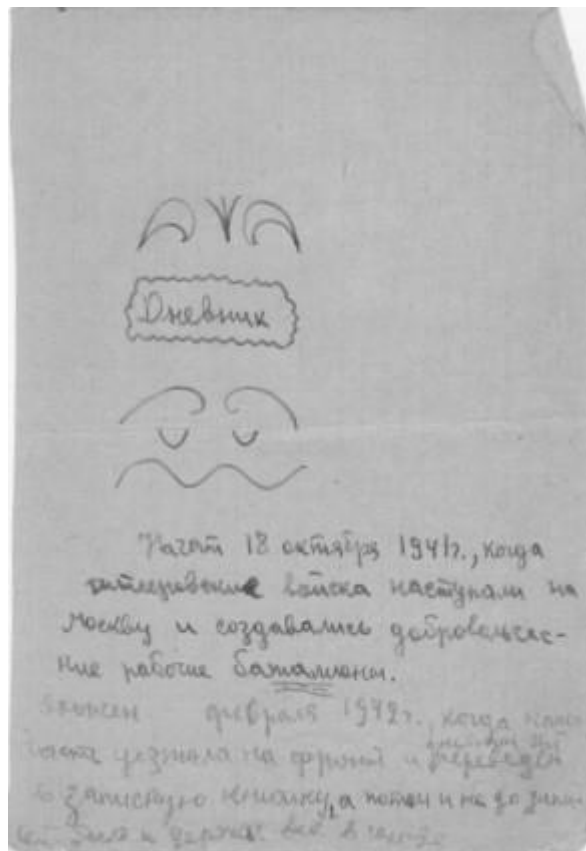 Дневник
Начат 18 октября 1941г., когда
гитлеровские войска наступали на
Москву и создавались добровольчес-
кие рабочие батальоны.
февраля 1942г., когда
уезжала на фронт и переведен
в записную книжку, а потом и не до